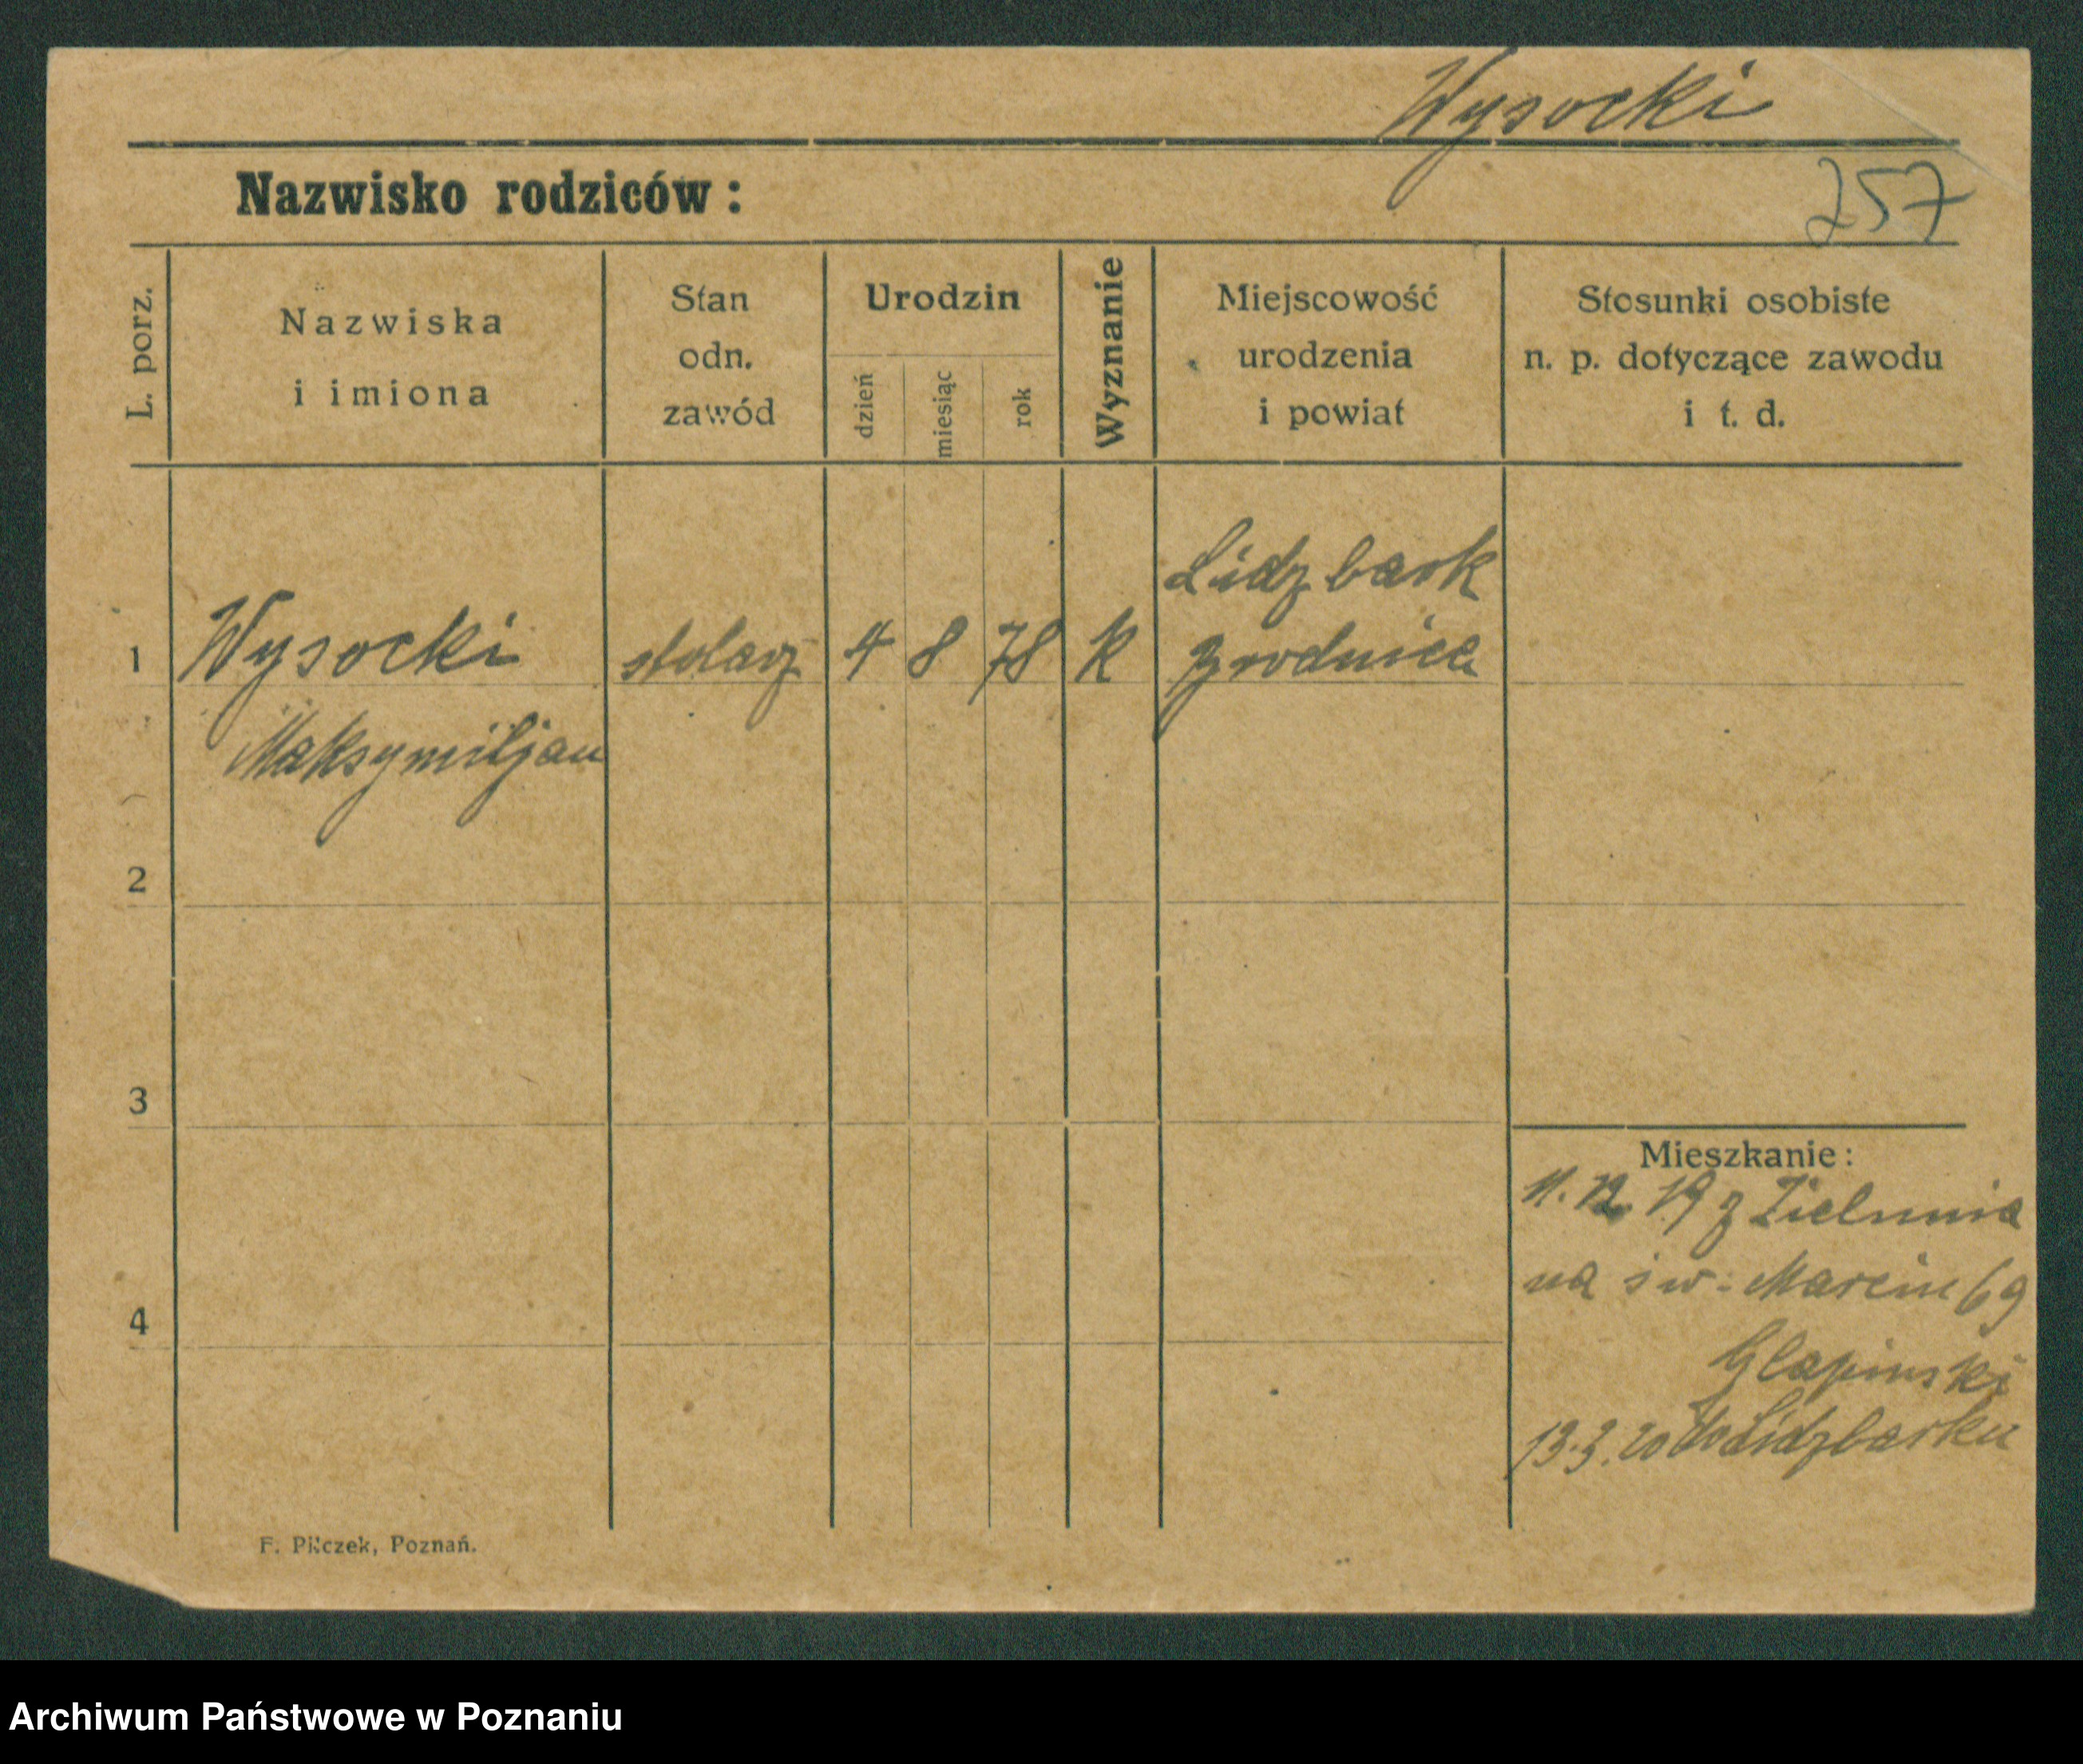 Wysocki
Nazwisko rodziców:
257
L. porz.
Nazwiska
i imiona
Stan
odn.
zawód
Urodzin
dzień
miesiąc
rok
Wyznanie
Miejscowość
urodzenia
i powiat
Stosunki osobiste
n. p. dotyczące zawodu
i t. d.
Lidzbark
1 Wysocki stolarz 4 8 78 K
Maksymiljan
2
3
4
Mieszkanie:
11. 12. 19 z
na św. Marcin 69
Glapinski
13.3.20 do Lidzbarku
F. Pilczek, Poznań.
Archiwum Państwowe w Poznaniu